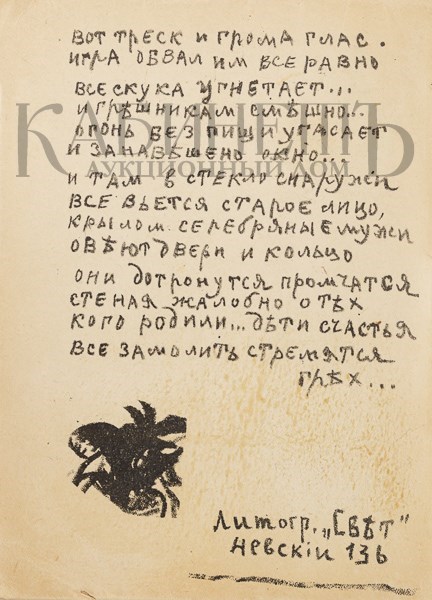 ВОТ ТРЕСК И ГРОМА ГЛАС.
ИГРА ОБВАЛ ИМ ВСЕ РАВНО
ВСЕ СКУКА УГНЕТАЕТ...
И ГРѢШНИКАМ СМѢШНО...
ОГОНЬ БЕЗ ПИЩИ УГАСАЕТ
И ЗАНАВѢШЕНО ОКНО...
И ТАМ В СТЕКЛО СНАРУЖИ
ВСЕ БЬЕТСЯ СТАРОЕ ЛИЦО,
КРЫЛОМ СЕРЕБРЯНЫЕ МУЖИ
ОВѢЮТ ДВЕРИ И КОЛЬЦО
ОНИ ДОТРОНУТСЯ ПРОМЧАТСЯ
СТЕНАЯ ЖАЛОБНО О ТѢХ
КОГО РОДИЛИ... ДѢТИ СЧАСТЬЯ
ВСЕ ЗАМОЛИТЬ СТРЕМЯТСЯ
ГРѢХ...
Литогр. „Свѣт"
Невскій 136
КАБИНЕТЪ
АУКЦИОННЫЙ ДОМ